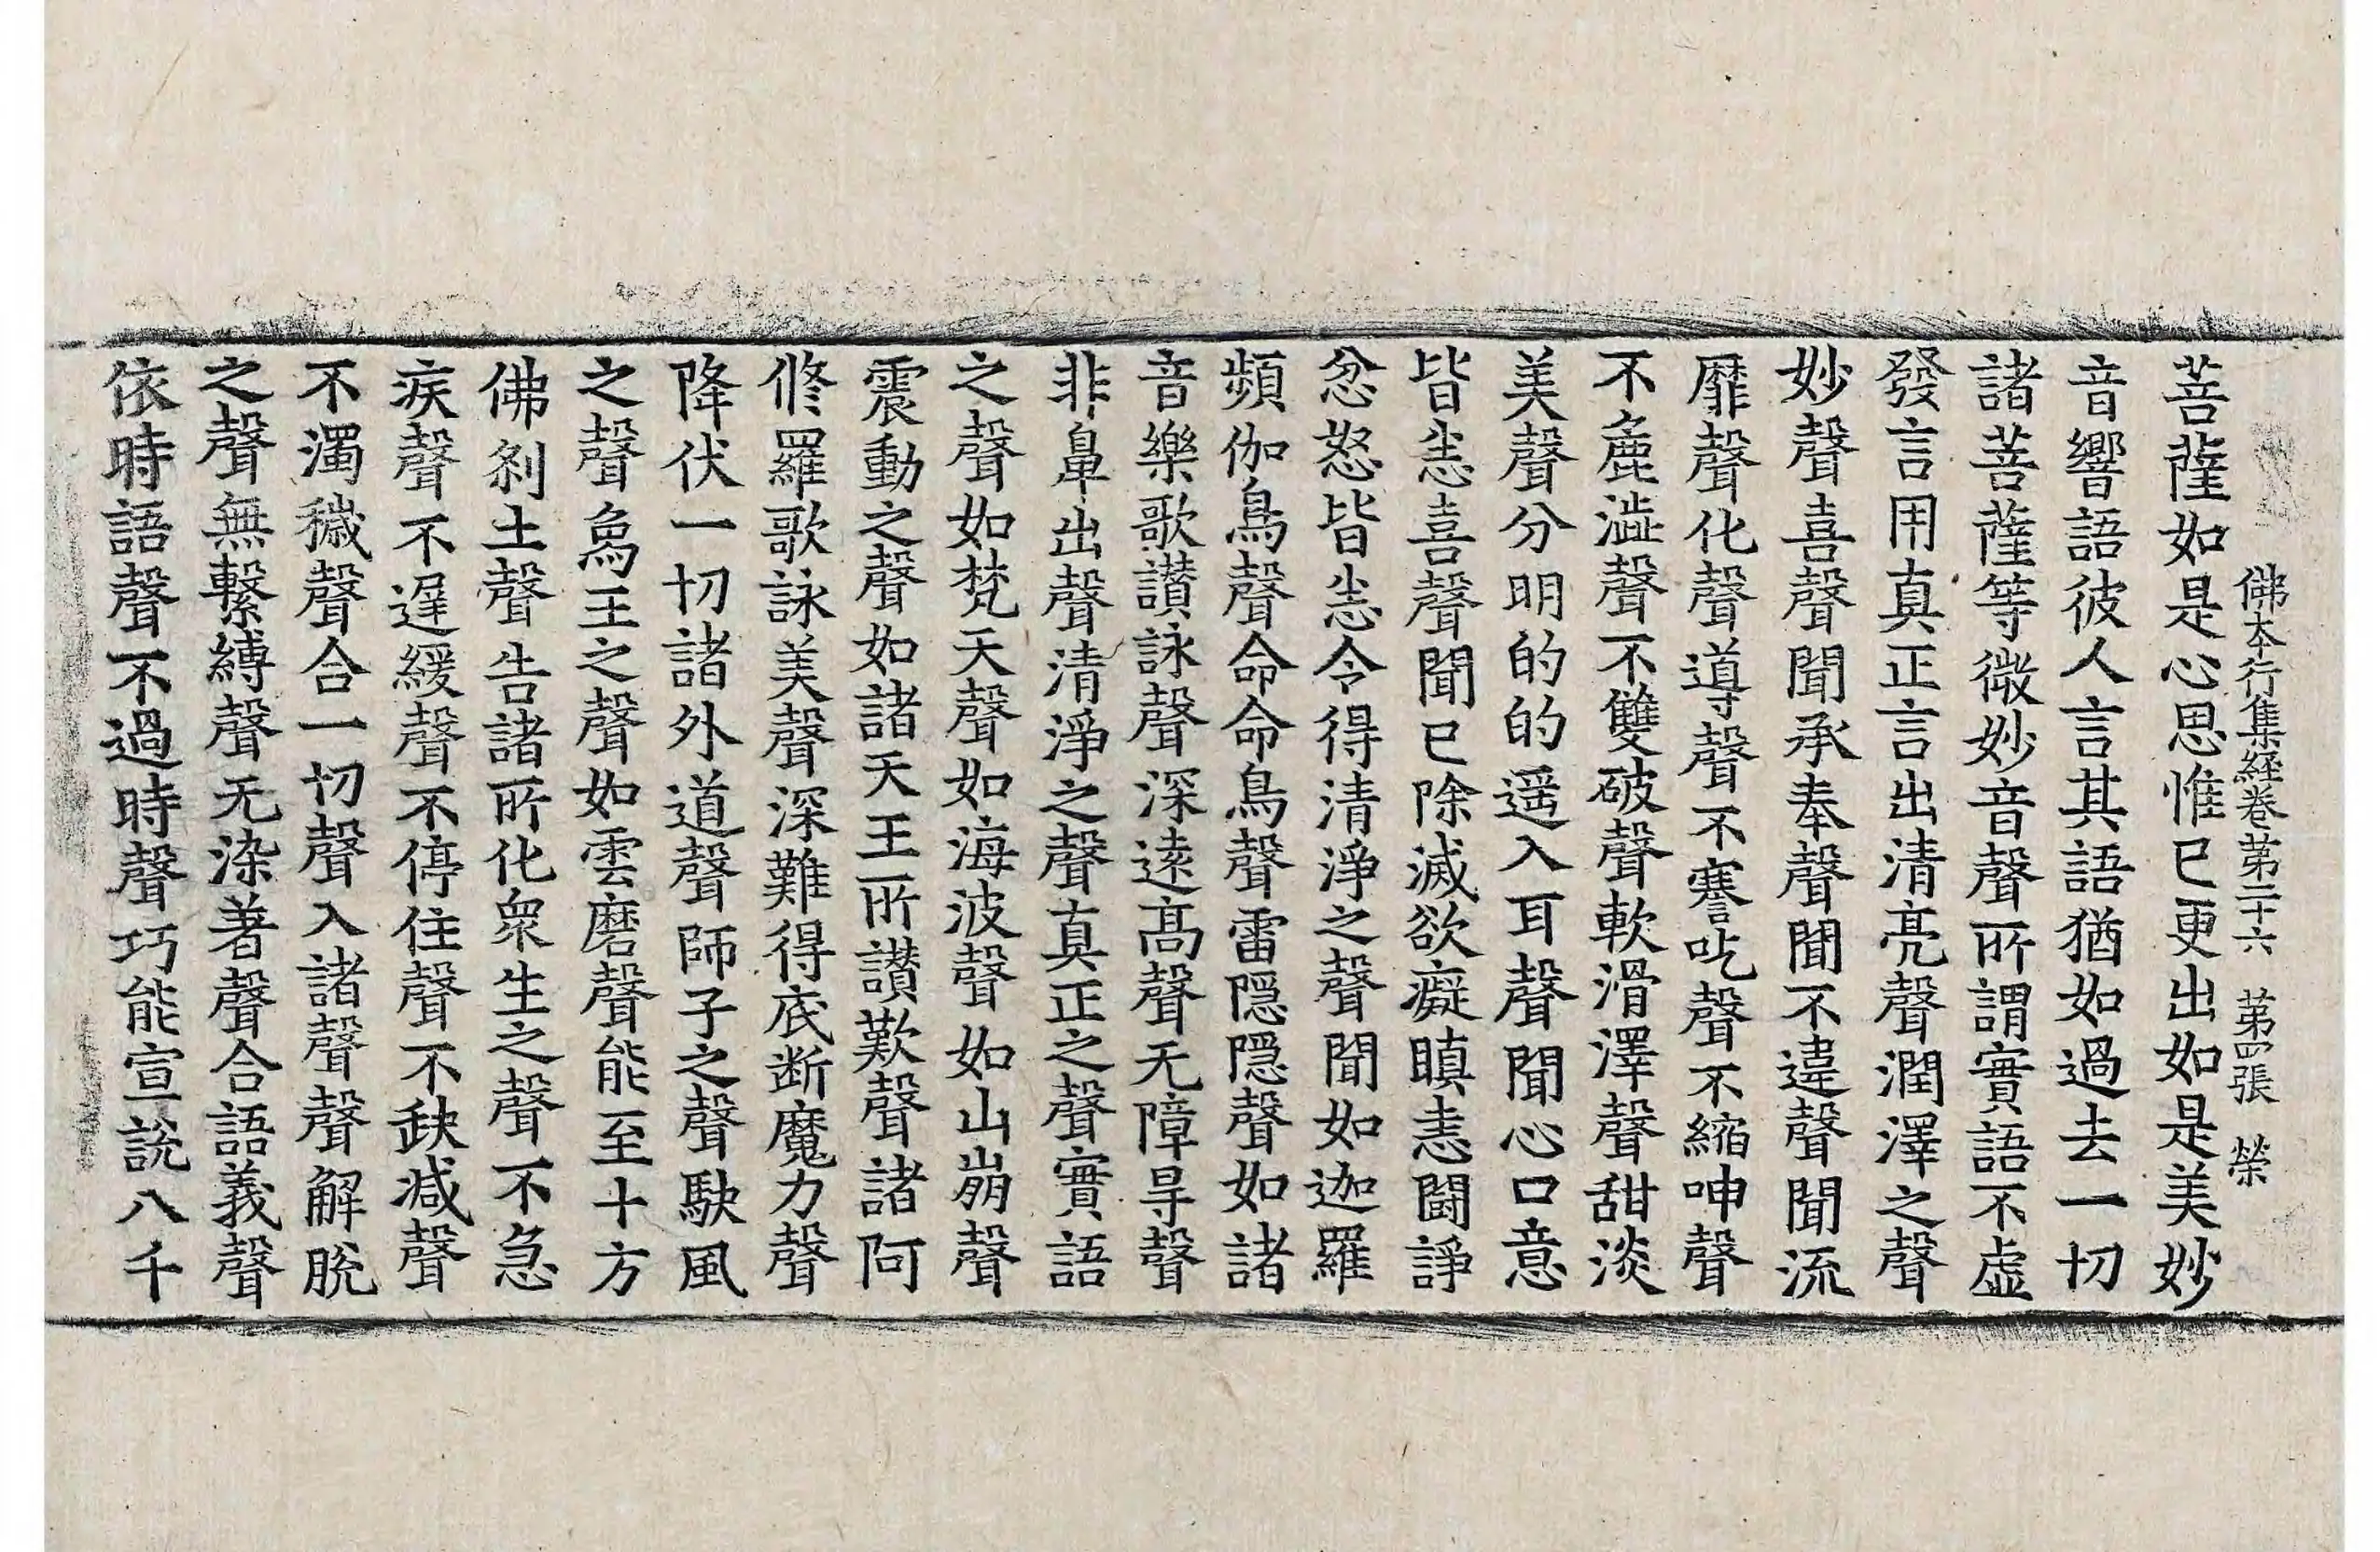 佛本行集經卷第二十六　第四張　榮
菩薩如是心思惟已更出如是美妙
音響語彼人言其語猶如過去一切
諸菩薩等微妙音聲所謂實語不虛
發言用真正言出清亮聲潤澤之聲
妙聲喜聲聞承奉聲聞不違聲聞流
靡聲化聲導聲不謇吃聲不縮呻聲
不麁澁聲不雙破聲軟滑澤聲甜淡
美聲分明的的遥入耳聲聞心口意
皆恚喜聲聞已除滅欲癡瞋恚鬪諍
忿怒皆恚令得清淨之聲聞如迦羅
頻伽鳥聲命命鳥聲雷隱隱聲如諸
音樂歌讃詠聲深遠高聲无障㝵聲
非鼻出聲清淨之聲真正之聲實語
之聲如梵天聲如海波聲如山崩聲
震動之聲如諸天王所讃歎聲諸阿
修羅歌詠美聲深難得底断魔力聲
降伏一切諸外道聲師子之聲駃風
之聲象王之聲如雲磨聲能至十方
佛刹土聲告諸所化衆生之聲不急
疾聲不遲緩聲不停住聲不缺减聲
不濁穢聲合一切聲入諸聲聲解脫
之聲無繫縛聲无染著聲合語義聲
依時語聲不過時聲巧能宣說八千